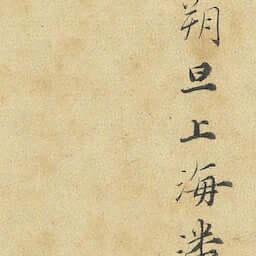 朔旦上海潘